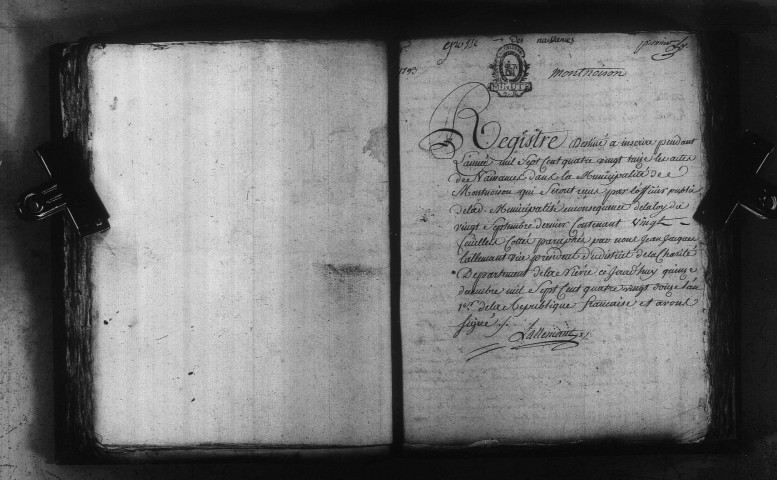 des naissances
premier
1793
MINUTE
Montnoison
Registre Destiné a inscrire pendant
L'année mil Sept Cent quatre vingt treize les actes
de Naissances dans la Municipalité de
Montnoison qui Seront reçus par l'officier public
de lad. Municipalité en consequence de la loy du
vingt Septembre dernier Contenant vingt
feuillets Cottés paraphés par nous Jean Jacques
Lallemant Vice president du district de la Charité
Departement de la Nievre ce jourd'huy quinze
decembre mil Sept Cent quatre vingt douze l'an
1er de la Republique francaise et avons
signé
Lallemant